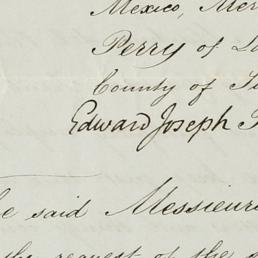 Mexico, Mer
Perry of L
County of
Edward Joseph
said Messieurs
the request of the